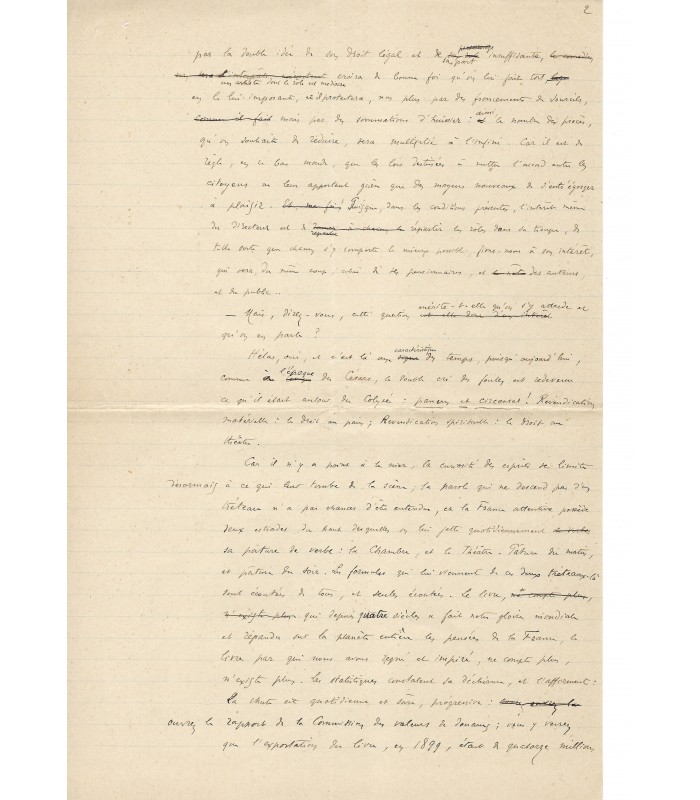 2
par la double idée de son droit légal et de sa part personnelle insuffisante,
croira de bonne foi qu'on lui fait tort
un artiste dont le rôle est médiocre
en le lui imposant, et protestera, non plus par des froncements de sourcils,
comme il fait mais par des sommations d'huissier : ainsi le nombre des procès,
qu'on souhaite de réduire, sera multiplié à l'infini. Car il est de
règle, en ce bas monde, que les lois destinées à mettre l'accord entre les
citoyens ne leur apportent guère que des moyens nouveaux de s'entr'égorger
à plaisir. Puisque, dans les conditions présentes, l'intérêt même
du Directeur est de répartir les rôles dans sa troupe, de
telle sorte que chacun s'y comporte le mieux possible, fions-nous à son intérêt,
qui sera, du même coup, celui de ses pensionnaires, et des auteurs,
et du public..
— Mais, direz-vous, cette question mérite-t-elle qu'on s'y attarde et
qu'on en parle ?
Hélas, oui, et c'est là une caractéristique des temps, puisqu'aujourd'hui,
comme à l'époque des Césars, le double cri des foules est redevenu
ce qu'il était autour du Colysée : panem et circenses ! Revendication
matérielle : le droit au pain ; Revendication spirituelle : le droit au
théâtre.
Car il n'y a point à le nier, la curiosité des esprits se limite
désormais à ce qui leur tombe de la scène ; la parole qui ne descend pas d'un
tréteau n'a pas chances d'être entendue, et la France attentive possède
deux estrades du haut desquelles on lui jette quotidiennement
sa pâture de verbe : la Chambre, et le Théâtre. Pâture du matin,
et pâture du soir. Les formules qui lui viennent de ces deux tréteaux-là
sont écoutées de tous, et seules écoutées. Le livre, ne compte plus,
n'existe plus qui depuis quatre siècles a fait notre gloire mondiale
et répandu sur la planète entière les pensées de la France, le
livre par qui nous avons régné et inspiré, ne compte plus,
n'existe plus. Les statistiques constatent sa déchéance, et l'affirment :
La chute est quotidienne et sûre, progressive :
ouvrez le rapport de la Commission des valeurs de douanes ; vous y verrez
que l'exportation du livre, en 1899, était de quatorze millions